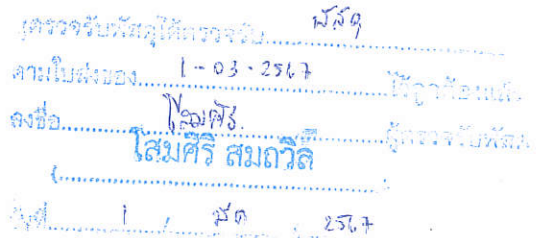 ผู้ตรวจรับพัสดุได้ตรวจรับ พัสดุ
ตามใบส่งของ 1-03-2567 ไว้ถูกต้องแล้ว
ลงชื่อ โสมศิริ ผู้ตรวจรับพัสดุ
โสมศิริ สมถวิล
(..............................)
วันที่ 1 / มีค / 2567